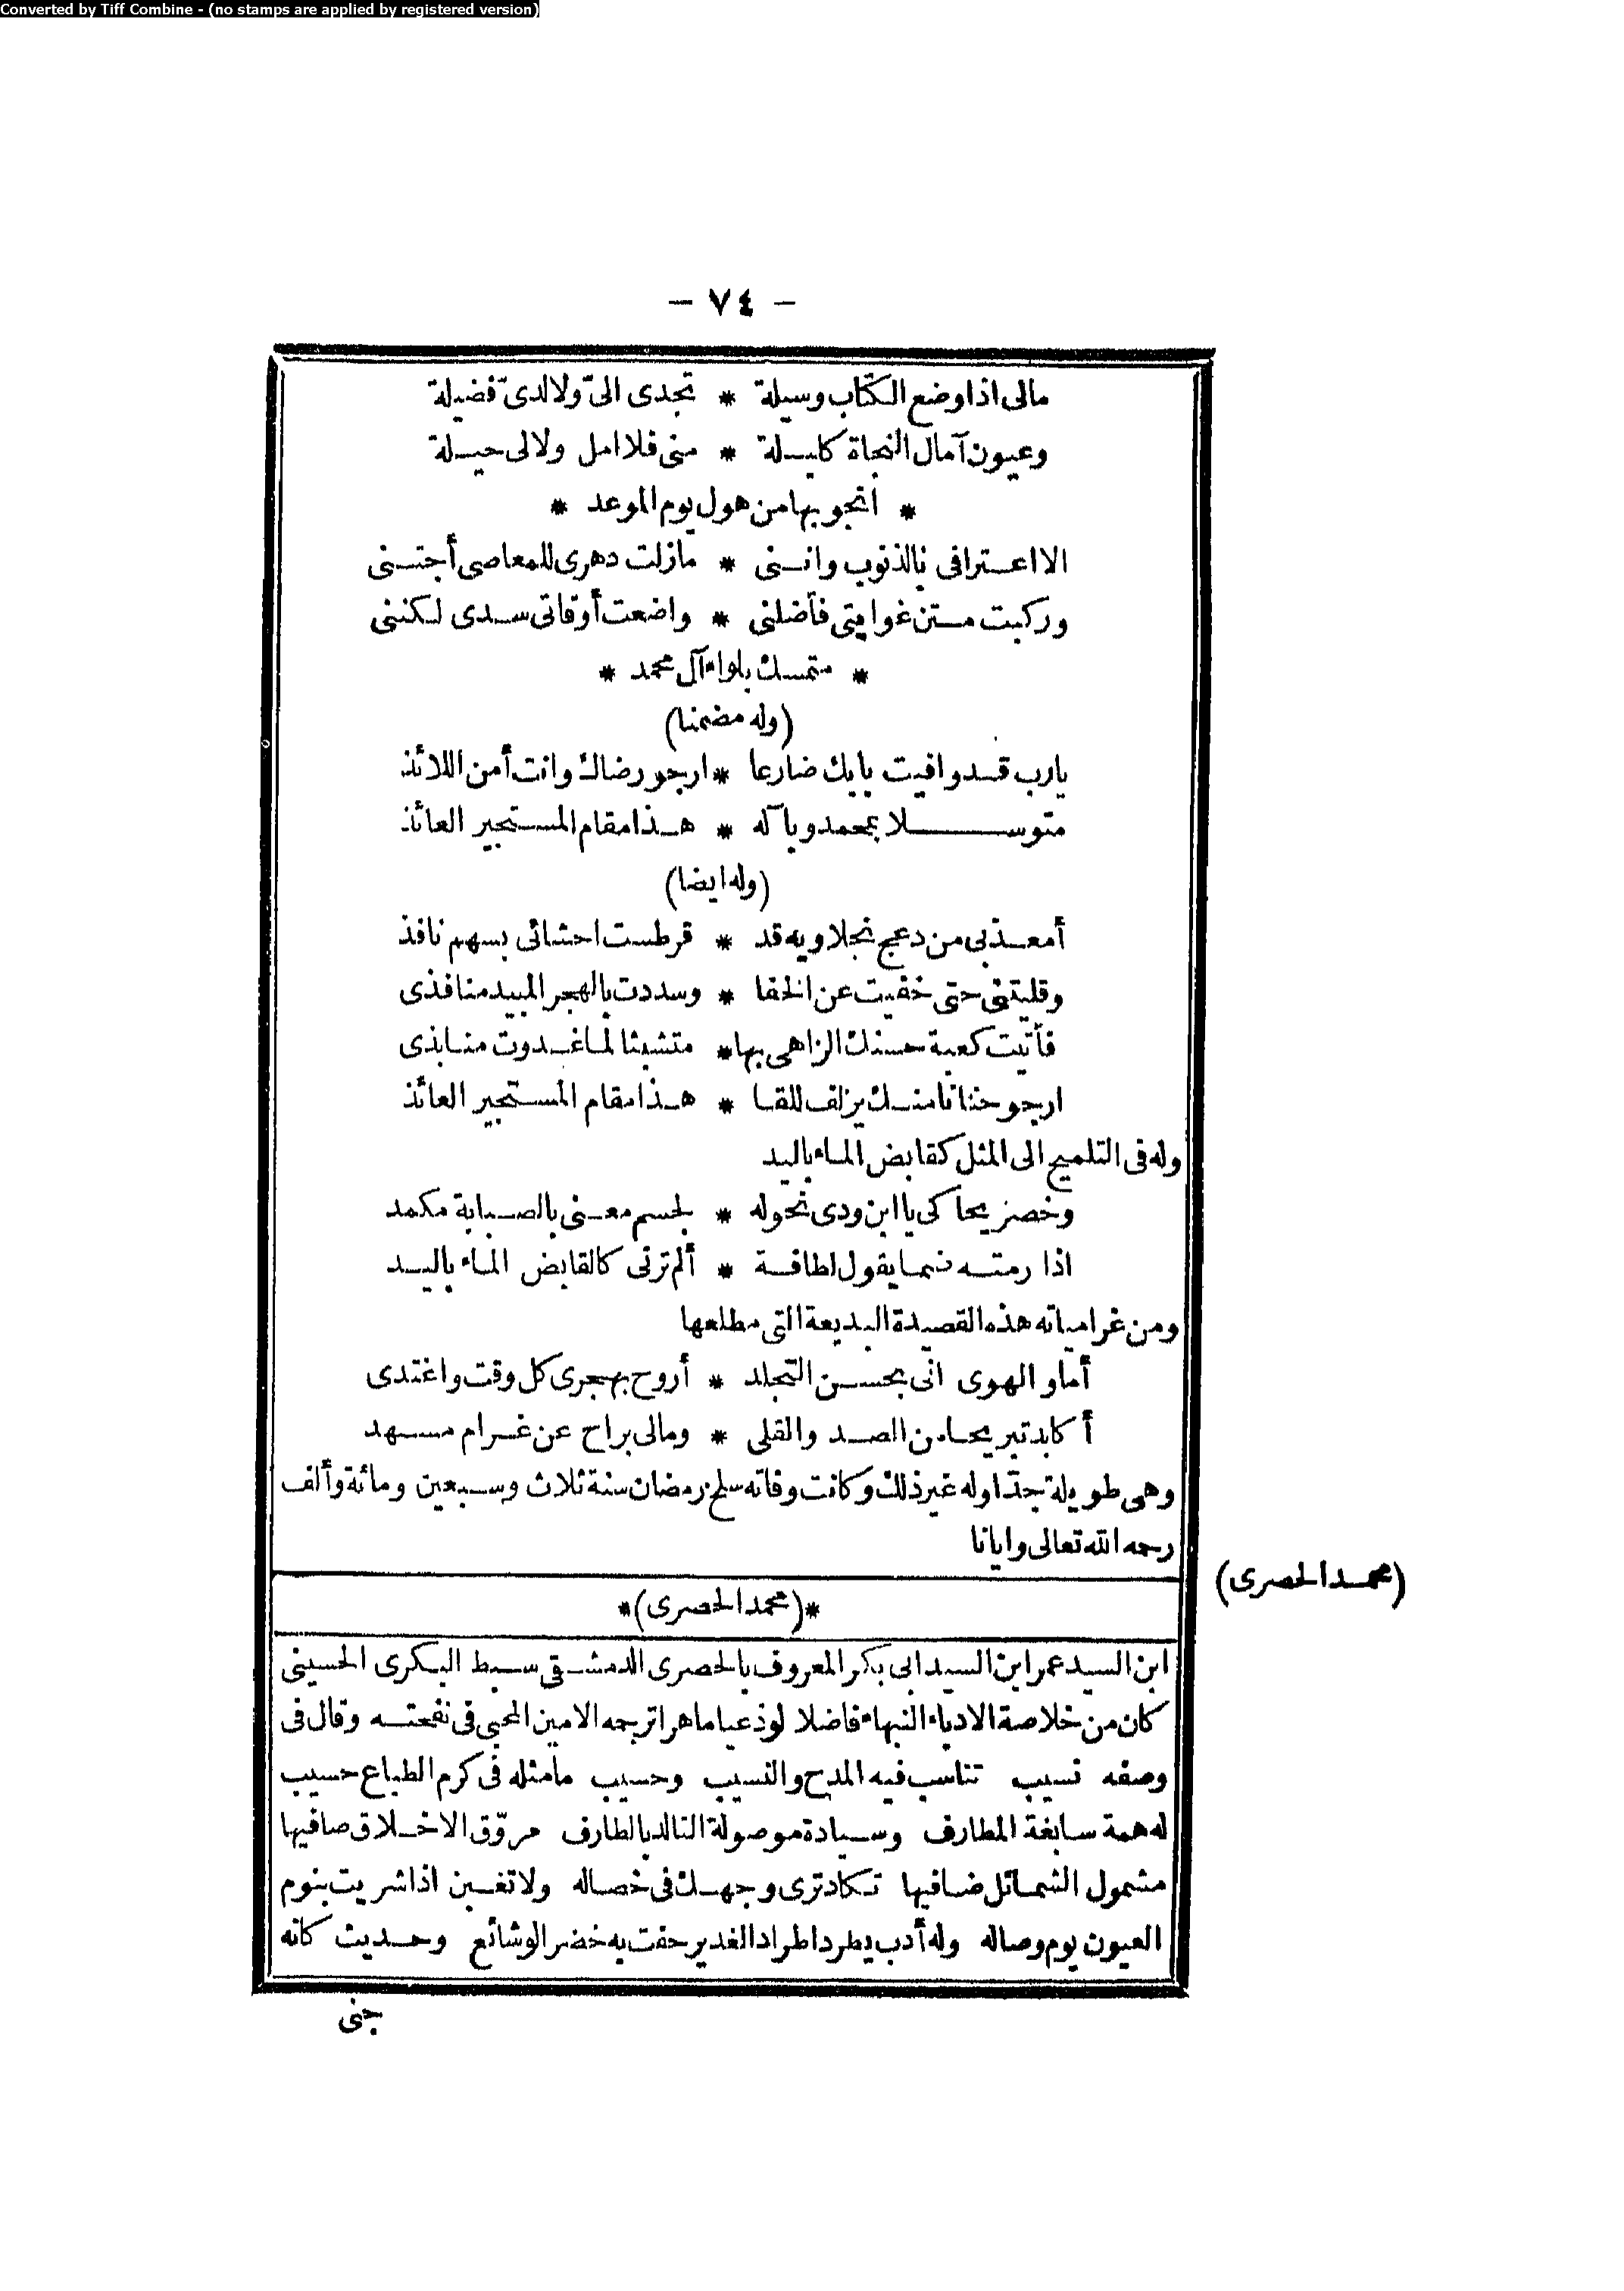 Converted by Tiff Combine - (no stamps are applied by registered version)
- ٧٤ -
مالى اذا وضع الكتاب وسيلة * تجدى الىّ ولا لدىّ فضيلة
وعيون آمال النجاة كليلة * منى فلا امل ولا لى حيلة
* انجو بها من هول يوم الموعد *
الا اعترافى بالذنوب واننى * مازلت دهرى للمعاصى أجتنى
وركبت متن غوايتى فأضلنى * واضعت أوقاتى سدى لكننى
* متمسك بلواء آل محمد *
(وله مضمنا)
يارب قد وافيت بابك ضارعا * ارجو رضاك وانت أمن اللائذ
متوسلا بمحمد وبآله * هذا مقام المستجير العائذ
(وله ايضا)
أمعذبى من دعج نجلاويه قد * قرطست احشائى بسهم نافذ
وقليتنى حتى خفيت عن الخفا * وسددت بالهجر المبيد منافذى
فأتيت كعبة حسنك الزاهى بها * متشبثا لما غدوت منابذى
ارجو حنانا منك يزلف للقا * هذا مقام المستجير العائذ
وله فى التلميح الى المثل كقابض الماء باليد
وخصر يحاكى يا ابن ودى نحوله * لجسم معنى بالصبابة مكمد
اذا رمته ضما يقول لطافة * ألم ترنى كالقابض الماء باليد
ومن غرامياته هذه القصيدة البديعة التى مطلعها
أما والهوى انى بحسن التجلد * أروح بهجرى كل وقت واغتدى
أكابد تبريحا من الصد والقلى * ومالى براح عن غرام مسهد
وهى طويلة جدّا وله غير ذلك وكانت وفاته سلخ رمضان سنة ثلاث وسبعين ومائة وألف
رحمه الله تعالى وايانا
(محمد الحصرى)
*(محمد الحصرى)*
ابن السيد عمر ابن السيد ابى بكر المعروف بالحصرى الدمشقى سبط البكرى الحسينى
كان من خلاصة الادباء النبهاء فاضلا لوذعيا ماهرا ترجمه الامين المحبى فى نفحته وقال فى
وصفه نسيب تناسب فيه المدح والنسيب وحسيب مامثله فى كرم الطباع حسيب
له همة سابغة المطارف وسيادة موصولة التالد بالطارف مروّق الاخلاق صافيها
مشمول الشمائل ضافيها تكاد ترى وجهك فى خصاله ولا تغبن اذا شريت بنوم
العيون يوم وصاله وله أدب يطرد اطراد الغدير حفت به خضر الوشائع وحديث كانه
جنى